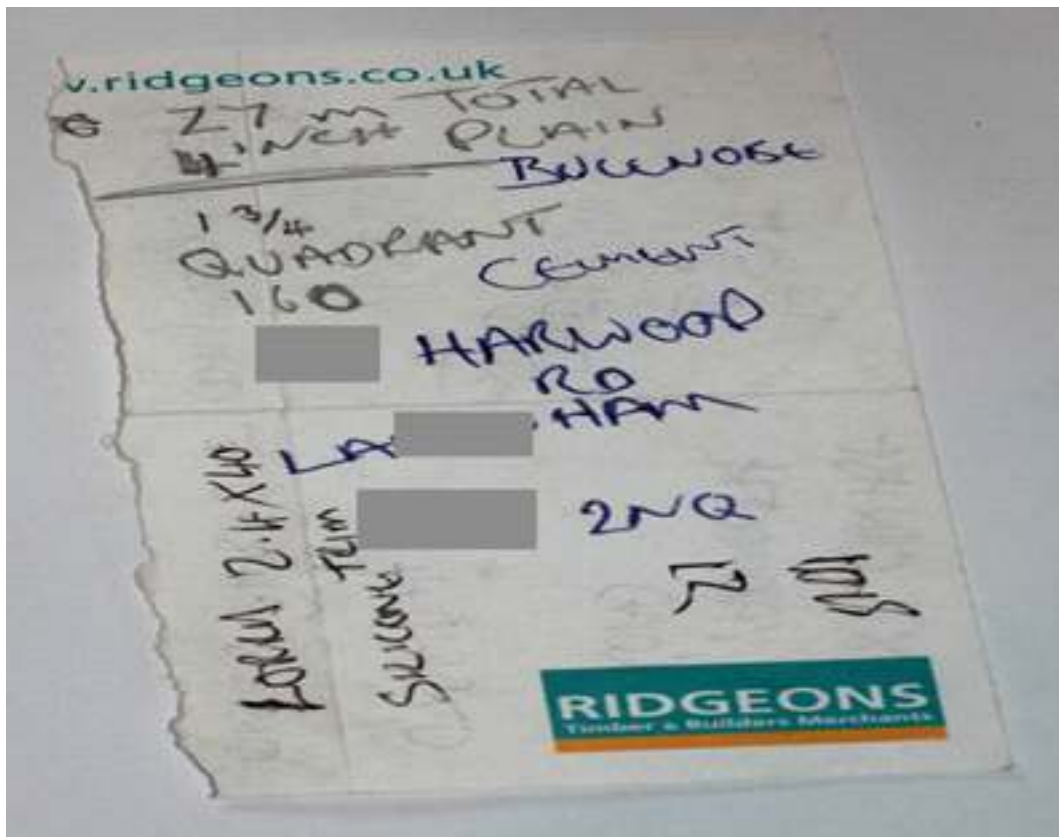 v.ridgeons.co.uk
27 m TOTAL
4 INCH PLAIN
BULLNOSE
1 3/4
QUADRANT
160
CEMENT
HARWOOD
RD
LA HAM
2NQ
2.4 X 40
TRIM
SILICONE
RIDGEONS
Timber & Builders Merchants